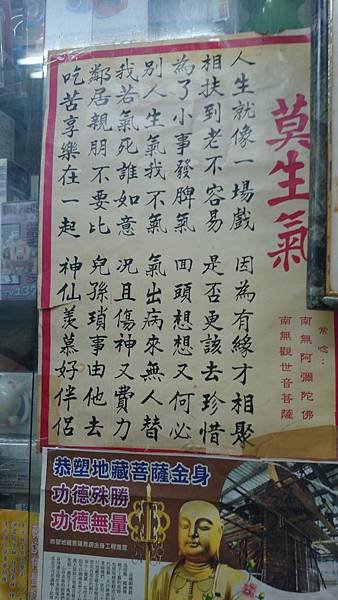 莫生氣
常念：
南無阿彌陀佛
南無觀世音菩薩
人生就像一場戲 因為有緣才相聚
相扶到老不容易 是否更該去珍惜
為了小事發脾氣 回頭想想又何必
別人生氣我不氣 氣出病來無人替
我若氣死誰如意 況且傷神又費力
鄰居親朋不要比 兒孫瑣事由他去
吃苦享樂在一起 神仙羨慕好伴侶
恭塑地藏菩薩金身
功德殊勝
功德無量